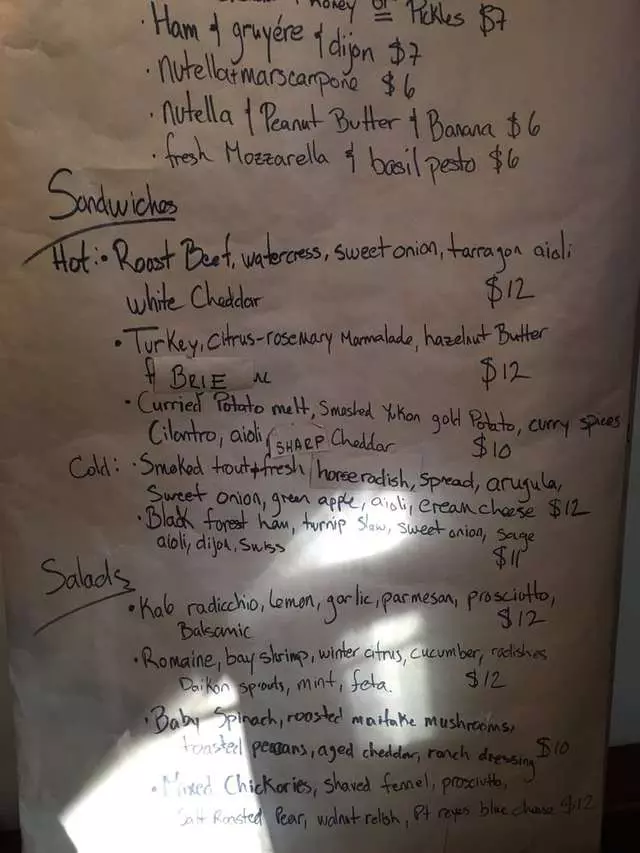 Honey or Pickles $7
· Ham & gruyére & dijon $7
· nutella + marscarpone $6
· nutella & Peanut Butter & Banana $6
· fresh Mozzarella & basil pesto $6
Sandwiches
Hot: • Roast Beef, watercress, sweet onion, tarragon aioli
white Cheddar $12
• Turkey, Citrus-rosemary Marmalade, hazelnut Butter
& BRIE $12
• Curried Potato melt, Smashed Yukon gold Potato, curry spices
Cilantro, aioli, SHARP Cheddar $10
Cold: • Smoked trout & fresh horseradish, spread, arugula,
Sweet onion, green apple, aioli, cream cheese $12
• Black forest ham, turnip slaw, sweet onion, sage
aioli, dijon, swiss $11
Salads
• Kab radicchio, Lemon, garlic, parmesan, prosciutto,
Balsamic $12
• Romaine, bay shrimp, winter citrus, cucumber, radishes
Daikon sprouts, mint, feta. $12
• Baby Spinach, roasted maitake mushrooms,
toasted pecans, aged cheddar, ranch dressing $10
• Mixed Chickories, shaved fennel, prosciutto,
Salt Roasted Pear, walnut relish, Pt reyes blue cheese $12